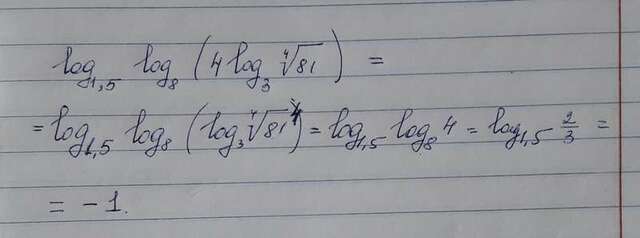 log₁,₅ log₈ (4 log₃ ⁴√81) =
= log₁,₅ log₈ (log₃ ⁴√81⁴) = log₁,₅ log₈ 4 = log₁,₅ 2/3 =
= -1.